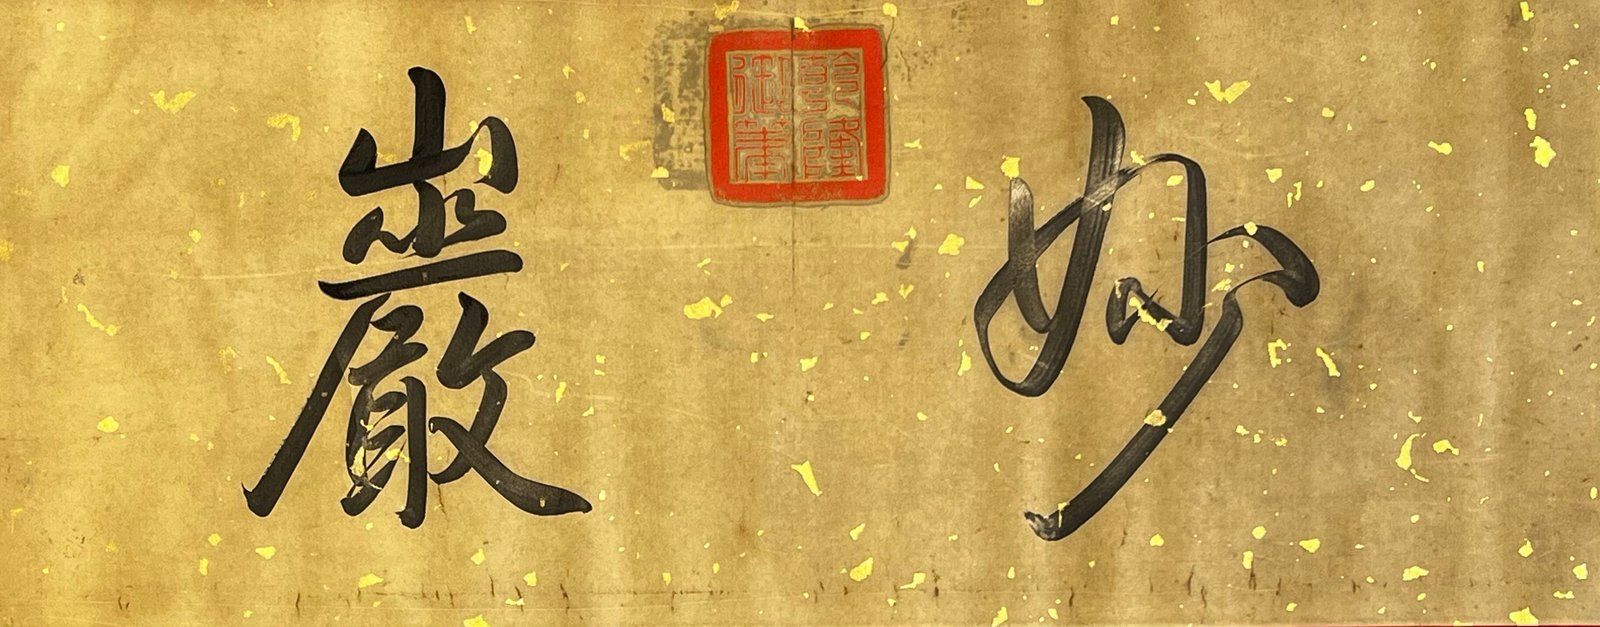 妙嚴
乾隆御筆